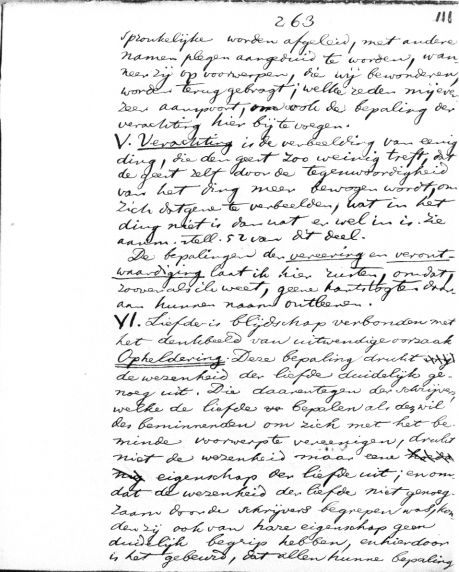 263
111
spronkelijke worden afgeleid, met andere
namen plegen aangeduid te worden, wan
neer zij op voorwerpen, die wij bewonderen,
worden terug gebragt; welke reden mij eve
zeer aanspoort, om ook de bepaling der
verachting hier bij te voegen.
V. Verachting is de verbeelding van eenig
ding, die den geest zoo weinig treft, dat
de geest zelf door de tegenwoordigheid
van het ding meer bewogen wordt, om
zich datgene te verbeelden, wat in het
ding niet is dan wat er wel in is. Zie
aanm. stell. 52 van dit deel.
De bepalingen der vereering en veront-
waardiging laat ik hier rusten, omdat,
zoover als ik weet, geene hartstogten
aan hunnen naam ontleenen.
VI. Liefde is blijdschap verbonden met
het denkbeeld van uitwendige oorzaak
Opheldering. Deze bepaling drukt
de wezenheid der liefde duidelijk ge-
noeg uit. Die daarentegen der schrijvers,
welke de liefde bepalen als de wil
des beminnenden om zich met het be-
minde voorwerp te vereenigen, drukt
niet de wezenheid maar eene
eigenschap der liefde uit; en om-
dat de wezenheid der liefde niet genoeg-
zaam door de schrijvers begrepen was, kon
den zij ook van hare eigenschap geen
duidelijk begrip hebben, en hierdoor
is het gebeurd, dat allen hunne bepaling